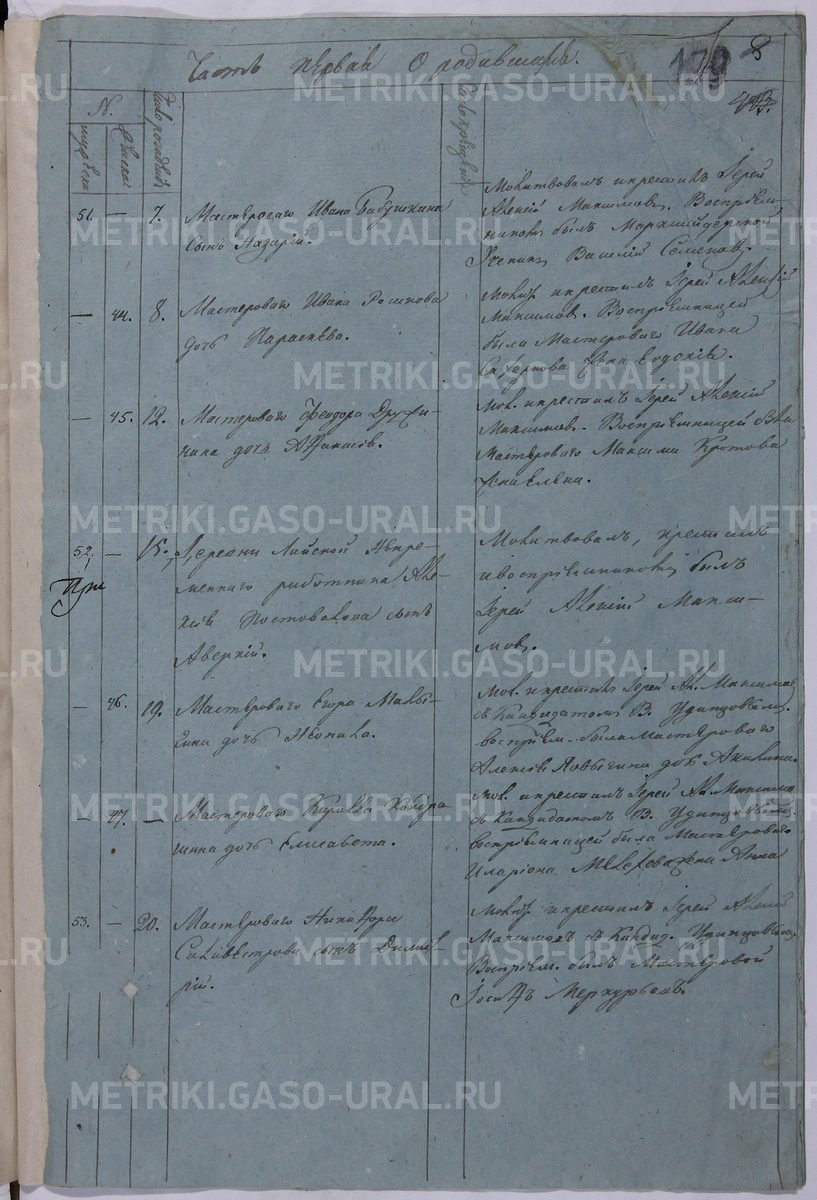 Часть первая О родившихся.
179
8
№.
мужеска
женска
число рождения
число крещения
51. — 7. Мастероваго Ивана Бабушкина
сынъ Назарий.
Молитвовалъ и крестилъ Iерей
Алексiй Максимовъ. Воспрiем-
никомъ былъ
Ученикъ Василiй Семеновъ.
— 44. 8. Мастероваго Ивана
дочь Параскева.
Молит. и крестилъ Iерей Алексiй
Максимовъ. Воспрiемницей
была Мастероваго Ивана
жена Евдокiя.
— 45. 12. Мастероваго Феодора Дружи-
нина дочь Афанасiя.
Мол. и крестилъ Iерей Алексiй
Максимовъ. Воспрiемницей
Мастероваго Максима Кротова
жена Елена.
52. — 15. Деревни Лайской Непре-
При
меннаго работника Але-
ксея Постовалова сынъ
Аверкiй.
Молитвовалъ, крестилъ
и воспрiемникомъ былъ
Iерей Алексiй Макси-
мовъ.
— 46. 19. Мастероваго Егора
дочь Неонила.
Мол. и крестилъ Iерей Ал. Максимовъ
съ Кандидатомъ В. Удинцовымъ.
воспрiем. была мастероваго
Алексея дочь Акилина.
— 47. — Мастероваго Кирилла Кондра
шина дочь Елисавета.
Мол. и крестилъ Iерей Ал. Максимо
съ Кандидатомъ В. Удинцовымъ
воспрiемницей была Мастероваго
Иларiона жена Анна
53. — 20. Мастероваго Никифора
Сильвестрова сынъ Димит
рiй.
Молит. и крестилъ Iерей Алексiй
Максимовъ съ Кандид. Удинцовымъ.
Воспрiем. былъ Мастеровой
Iосифъ Меркурьевъ.
METRIKI.GASO-URAL.RU